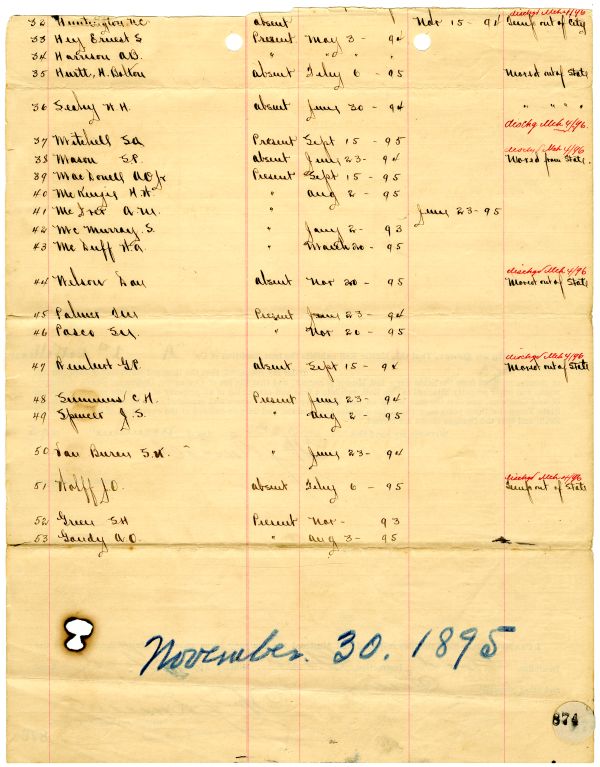 dischgd Mch 4/96
32 Huntington N.C. absent Nov 15 - 94 Temp out of City
33 Hey Ernest S Present May 3 - 94
34 Harrison A.B. " " " "
35 Hurtt, H. Bolton absent Feby 6 - 95 Moved out of State
36 Sealey W H. absent June 30 - 94 " " " "
dischg Mch 4/96.
37 Mitchell S.A. Present Sept 15 - 95
dischgd Mch 4/96
38 Mason S.P. absent June 23 - 94 Moved from State.
39 MacDonell A.O. Jr Present Sept 15 - 95
40 H.W. " Aug 2 - 95
41 A.M. " June 23 - 95
42 McMurray S. " 2 - 93
43 McDuff W.A. " March 20 - 95
dischgd Mch 4/96
44 Wilson absent Nov 20 - 95 Moved out of State
45 Palmer Present June 23 - 94
46 Pasco " Nov 20 - 95
dischgd Mch 4/96
47 G.P. absent Sept 15 - 94 Moved out of State
48 Summers C.H. Present June 23 - 94
49 Spencer J.S. " Aug 2 - 95
50 Van Buren S.H. " June 23 - 94
dischgd Mch 4/96
51 Wolff J.O. absent Feby 6 - 95 Temp out of State
52 Green S.H Present Nov - 93
53 Gandy A.O. " Aug 3 - 95
November. 30. 1895
874